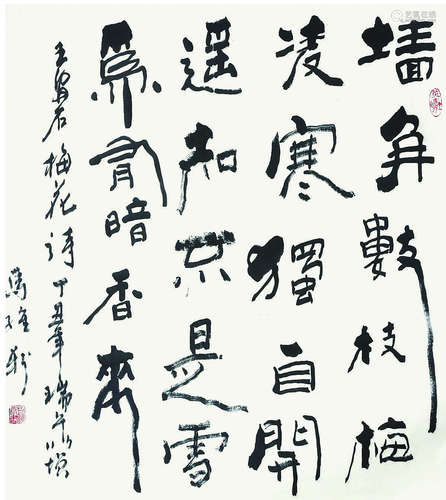 墙角數枝梅
凌寒獨自開
遥知不是雪
為有暗香來
王安石梅花诗 丁丑年